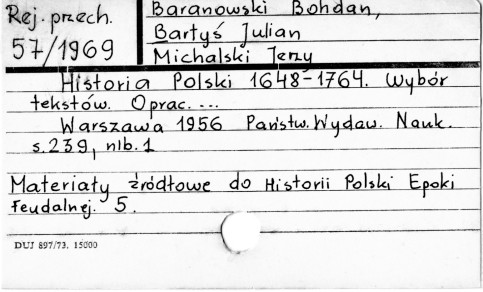 Rej. przech.
57/1969
Baranowski Bohdan,
Bartyś Julian
Michalski Jerzy
Historia Polski 1648-1764. Wybór
tekstów. Oprac. ...
Warszawa 1956 Państw. Wydaw. Nauk.
s. 239, nlb. 1
Materiały źródłowe do Historii Polski Epoki
Feudalnej. 5.
DUJ 897/73. 15000